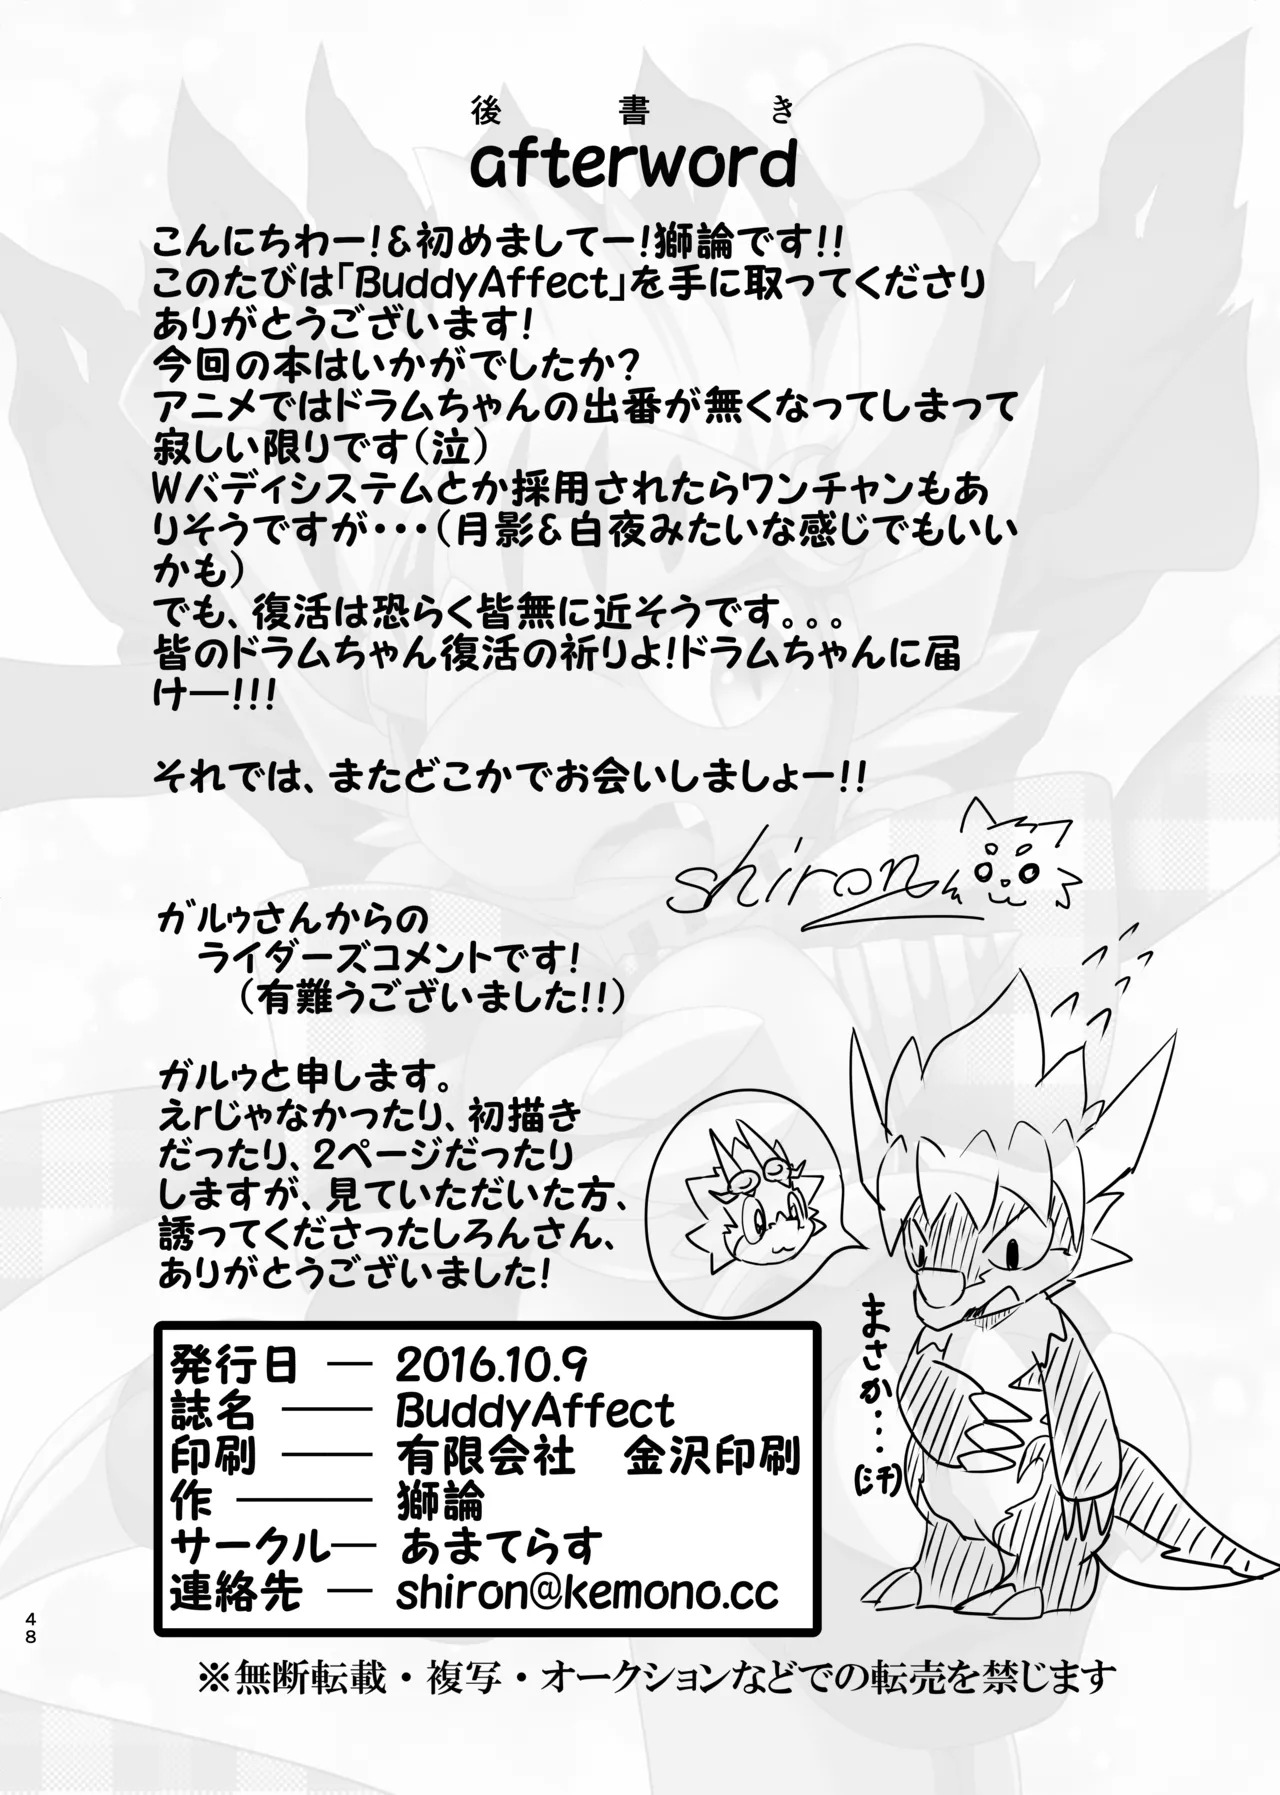 後書き
afterword
こんにちわー!&初めましてー!獅論です!!
このたびは「BuddyAffect」を手に取ってくださり
ありがとうございます!
今回の本はいかがでしたか?
アニメではドラムちゃんの出番が無くなってしまって
寂しい限りです(泣)
Wバディシステムとか採用されたらワンチャンもあ
りそうですが・・・(月影&白夜みたいな感じでもいい
かも)
でも、復活は恐らく皆無に近そうです。。。
皆のドラムちゃん復活の祈りよ!ドラムちゃんに届
け―!!!
それでは、またどこかでお会いしましょー!!
shiron
ガルゥさんからの
ライダーズコメントです!
(有難うございました!!)
ガルゥと申します。
えrじゃなかったり、初描き
だったり、2ページだったり
しますが、見ていただいた方、
誘ってくださったしろんさん、
ありがとうございました!
まさか・・・・
発行日 ― 2016.10.9
誌名 ―― BuddyAffect
印刷 ―― 有限会社 金沢印刷
作 ――― 獅論
サークル― あまてらす
連絡先 ― shiron@kemono.cc
48
※無断転載・複写・オークションなどでの転売を禁じます